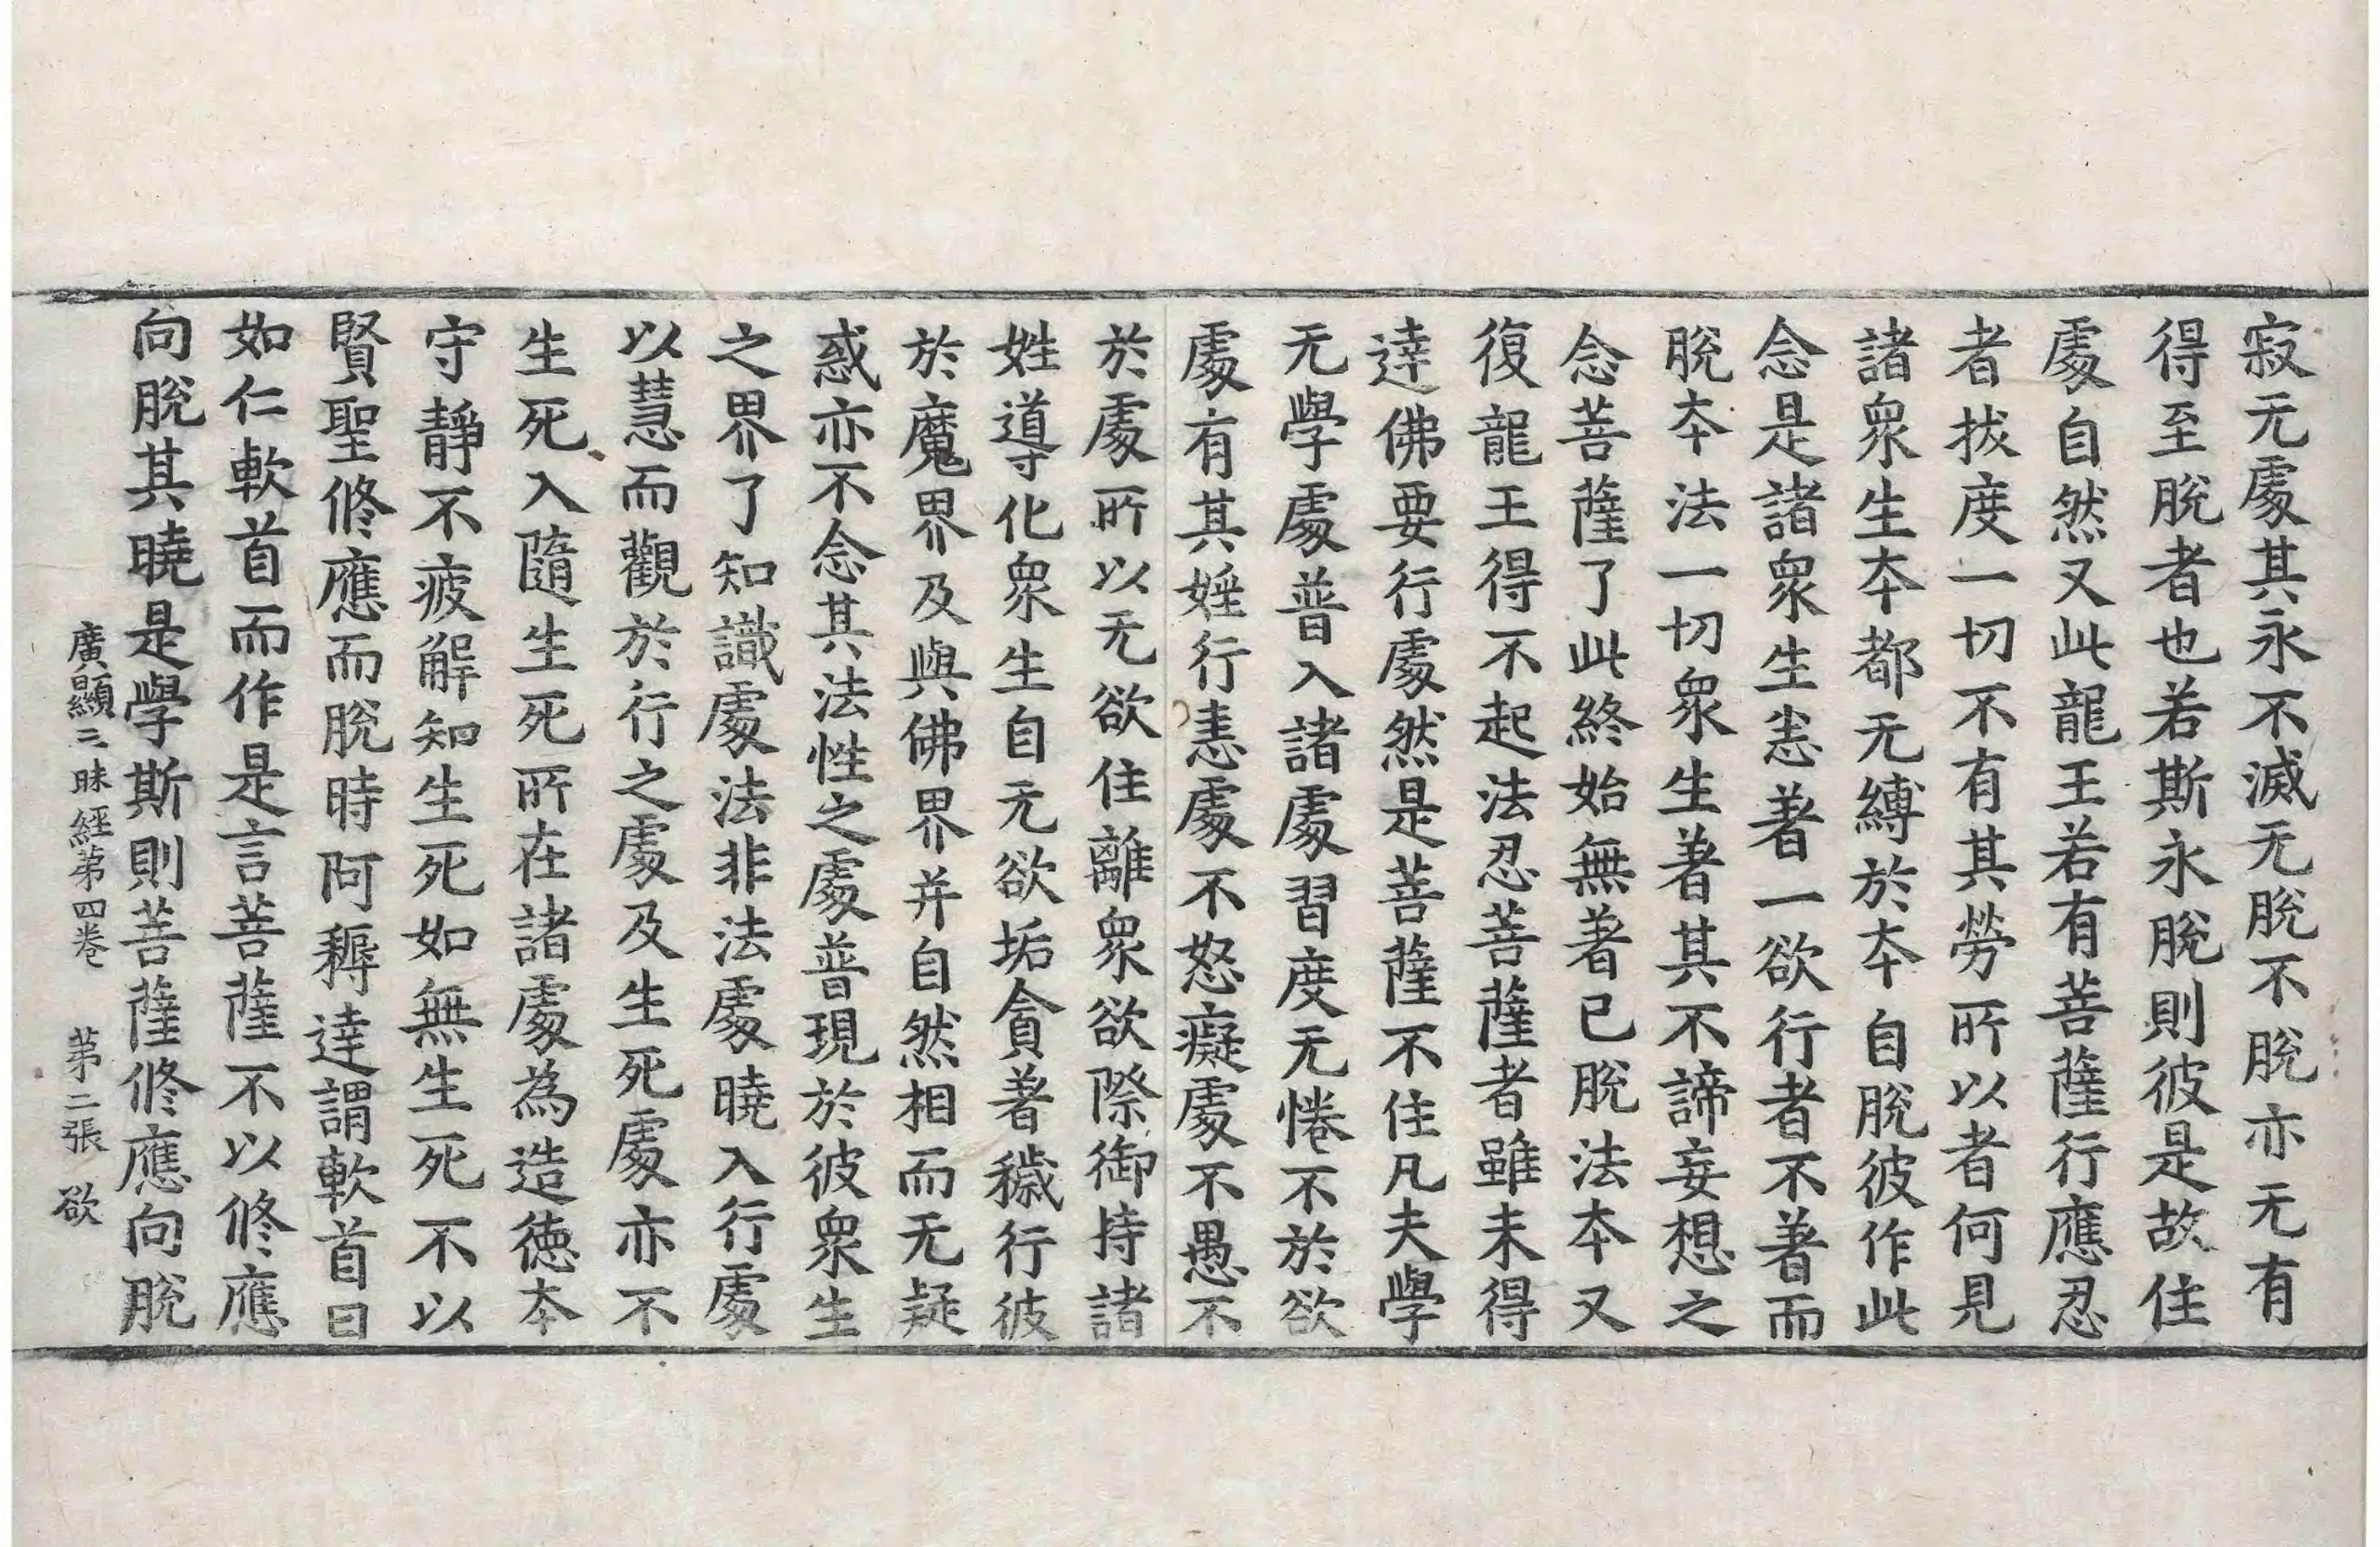 寂无處其永不滅无脫不脫亦无有
得至脫者也若斯永脫則彼是故住
處自然又此龍王若有菩薩行應忍
者拔度一切不有其勞所以者何見
諸衆生本都无縛於本自脫彼作此
念是諸衆生恚著一欲行者不著而
脫本法一切衆生著其不諦妄想之
念菩薩了此終始無著已脫法本又
復龍王得不起法忍菩薩者雖未得
逹佛要行處然是菩薩不住凡夫學
无學處普入諸處習度无惓不於欲
處有其婬行恚處不怒癡處不愚不
於處所以无欲住離衆欲際御持諸
姓導化衆生自无欲垢貪著穢行彼
於魔界及與佛界并自然相而无疑
惑亦不念其法性之處普現於彼衆生
之界了知識處法非法處曉入行處
以慧而觀於行之處及生死處亦不
生死入隨生死所在諸處為造德本
守靜不疲解知生死如無生死不以
賢聖修應而脫時阿耨達謂軟首曰
如仁軟首而作是言菩薩不以修應
向脫其曉是學斯則菩薩修應向脫
廣顯三昧經苐四卷 苐二張 欲